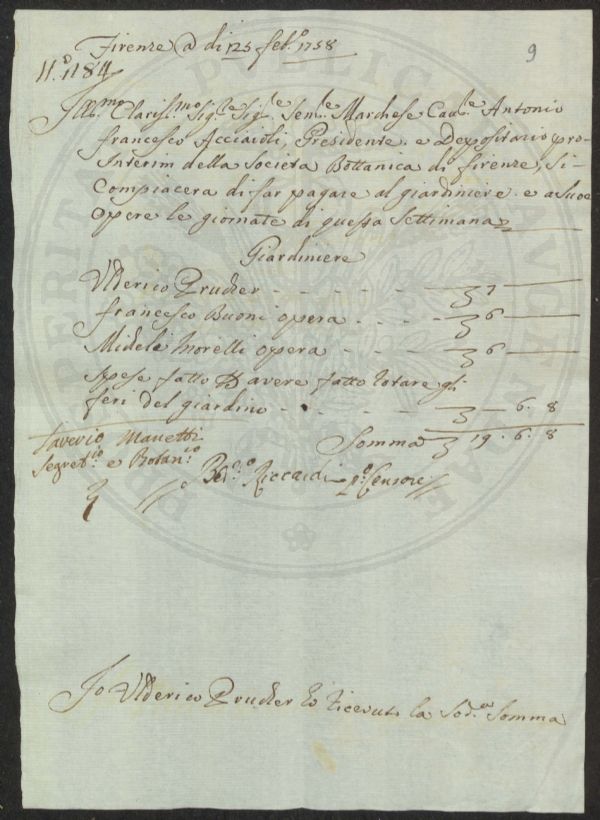 Firenze @ di 125 feb.º 1758
9
N.º 1184
Ill.mo Clariss.mo Sig.re Sig.re Sen.re Marchese Cav.re Antonio
francesco Acciaioli, Presidente e Depositario pro=
Interim della Società Bottanica di firenze, si
Compiacera di far pagare al giardiniere e a sue
opere le giornate di questa Settimana
Giardiniere
Ulderico Prucker - - - - 7 —
francesco Buoni opera - - - 6 —
Michele Morelli opera - - - 6 —
spese fatto avere fatto rotare gli
feri del giardino - - — 6. 8
Saverio Manetti
Somma 19. 6. 8
Segret.rio e Botan.co
Riccardi p.º Censore
Io Ulderico Prucker ho ricevuto la Sod.a Somma
PERITA
PUBLICA